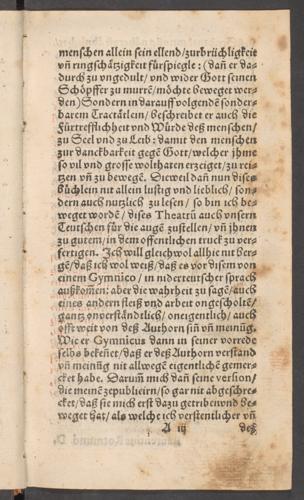 menschen allein sein ellend/ zurbrüchligkeit
vñ ringschätzigkeit fürspiegle: (dañ er da-
durch zu vngedult/ vnd wider Gott seinen
Schöpffer zu murrē/ möchte beweget wer-
den) Sondern in darauff volgendē sonder-
barem Tractätlein/ beschreibet er auch die
Fürtrefflichheit vnd Würde deß menschen/
zu Seel vnd zu Leib: damit den menschen
zur danckbarkeit gegē Gott/ welcher ihme
so vil vnd grosse wolthaten erzeiget/ zu rei-
tzen vñ zu bewegē. Dieweil dañ nun dises
büchlein nit allein lustig vnd lieblich/ son-
dern auch nutzlich zu lesen/ so bin ich be-
weget wordē/ dises Theatrū auch vnsern
Teutschen für die augē zustellen/ vñ ihnen
zu gutem/ in dem offentlichen truck zu ver-
fertigen. Ich will gleichwol allhie nit ber-
gē/ daß ich wol weiß/ daß es vor disem von
einem Gymnico/ in niderteutscher sprach
außkom̄en: aber die wahrheit zu sagē/ auch
eines andern fleiß vnd arbeit ongescholtē/
gantz onverständtlich/ oneigentlich/ auch
offt weit von deß Authorn siñ vñ meinūg.
Wie er Gymnicus dann in seiner vorrede
selbs bekeñet/ daß er deß Authorn verstand
vñ meinūg nit allwegē eigentlichē gemer-
cket habe. Darum̄ mich dañ seine version/
die meinē zepublieirn/ so gar nit abgeschre-
cket/ daß sie mich erst dazu getriben vnd be-
weget hat/ als welche ich verstentlicher vñ
A iij deß